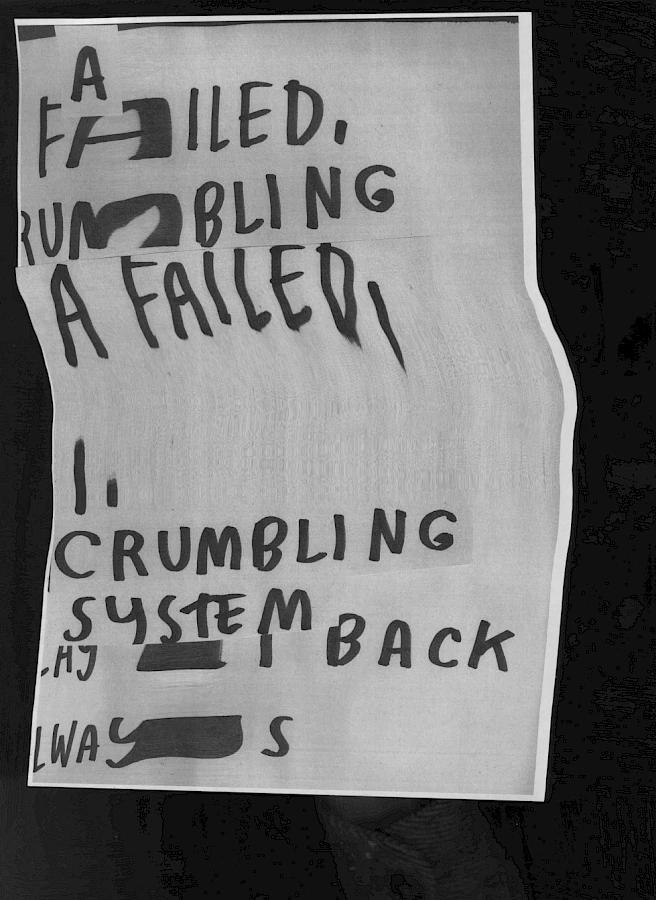 A
FAILED,
RUMBLING
A FAILED,
I.
CRUMBLING
SYSTEM
I BACK
LWAYS